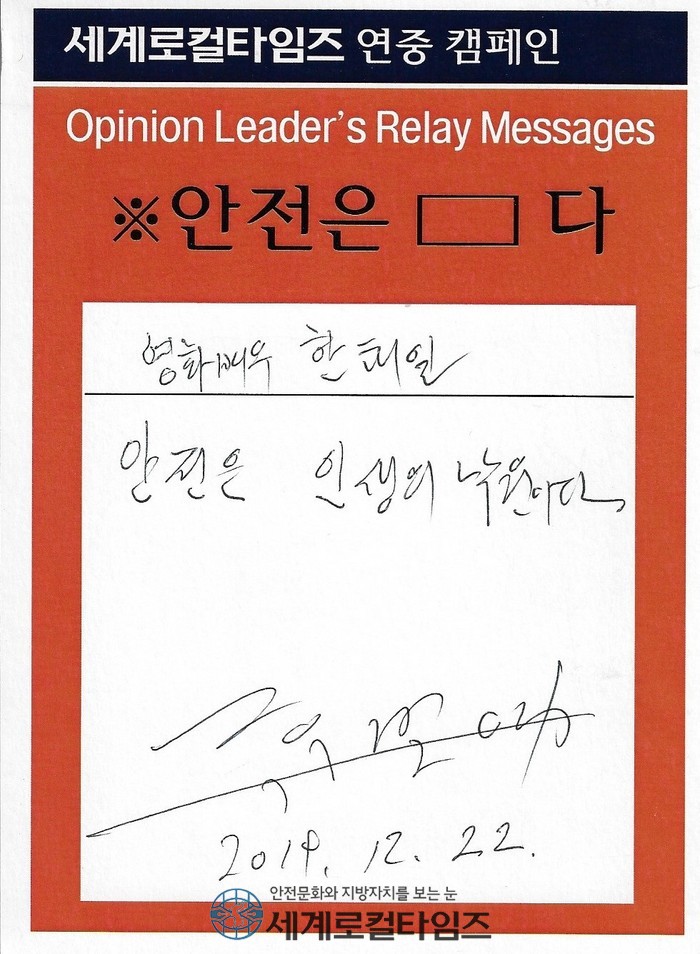 세계로컬타임즈 연중 캠페인
Opinion Leader's Relay Messages
※안전은 다
영화배우 한태일
안전은 인생의 낙원이다.
2019. 12. 22.
안전문화와 지방자치를 보는 눈
세계로컬타임즈